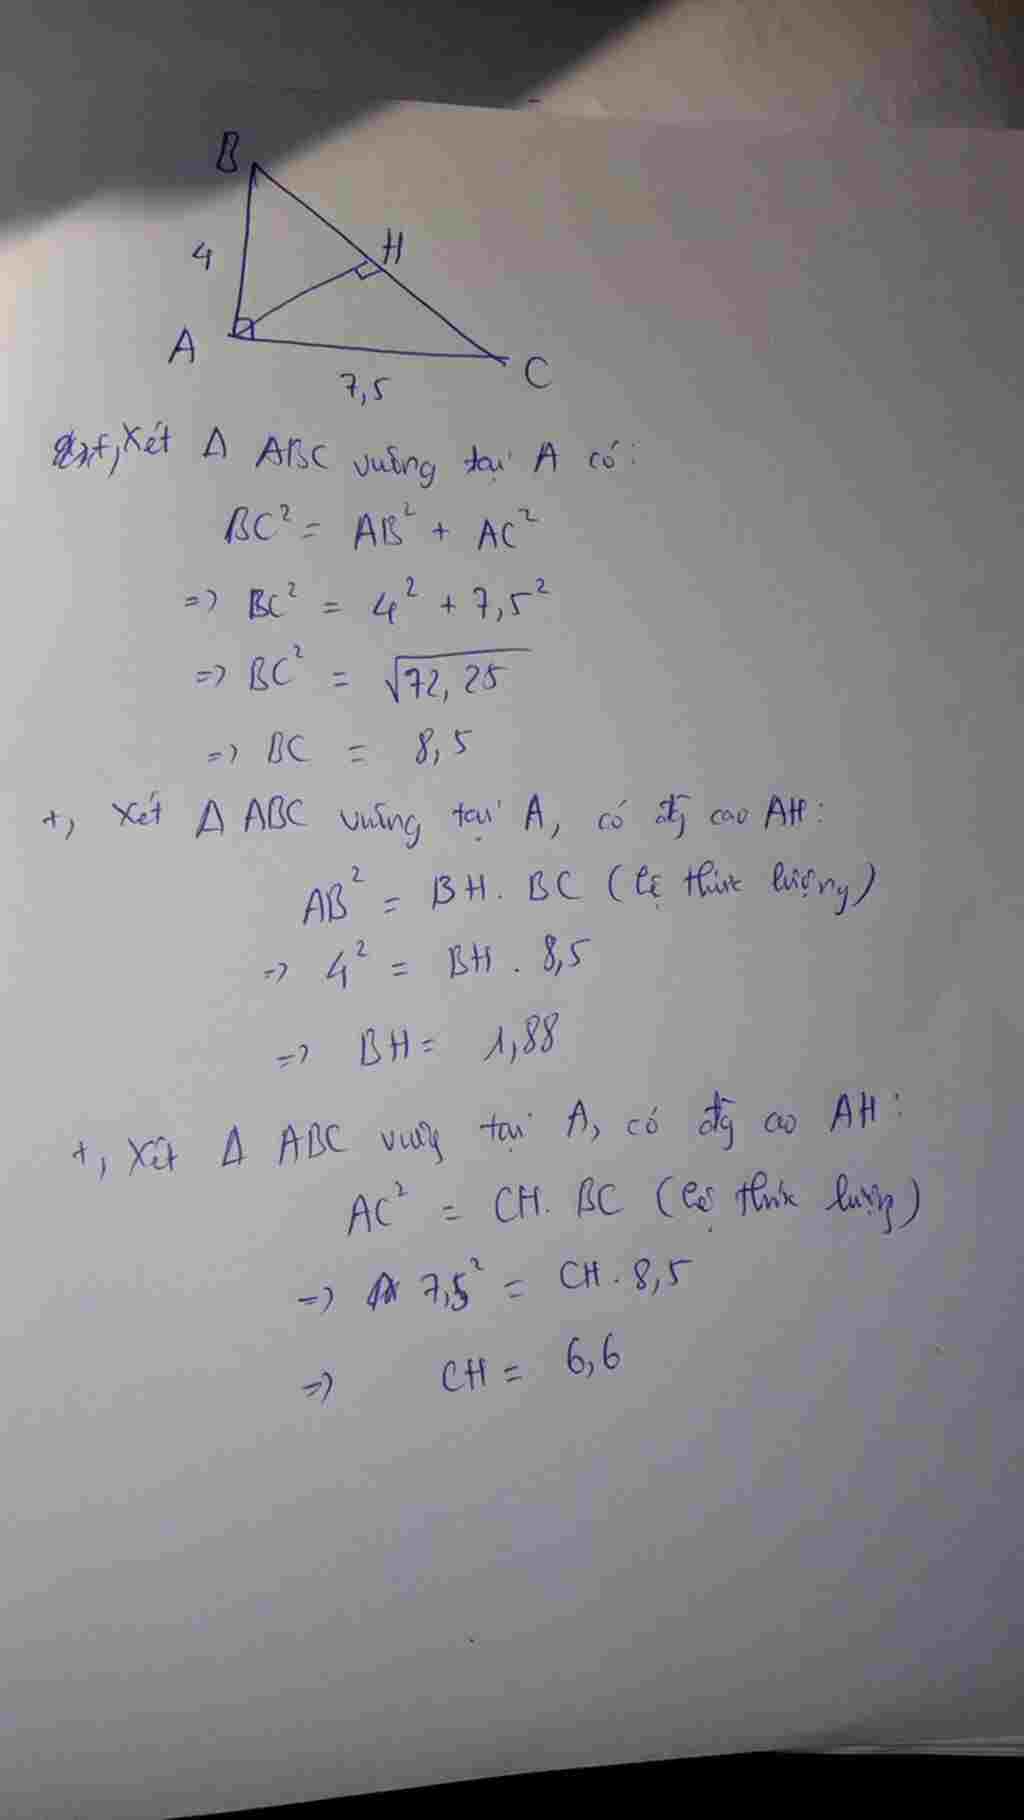 B
4
H
A
C
7,5
Xét Δ ABC vuông tại A có:
BC² = AB² + AC²
=> BC² = 4² + 7,5²
=> BC² = √72,25
=> BC = 8,5
+, Xét Δ ABC vuông tại A, có đg cao AH:
AB² = BH . BC (hệ thức lượng)
=> 4² = BH . 8,5
=> BH = 1,88
+, Xét Δ ABC vuông tại A, có đg cao AH:
AC² = CH . BC (hệ thức lượng)
=> 7,5² = CH . 8,5
=> CH = 6,6